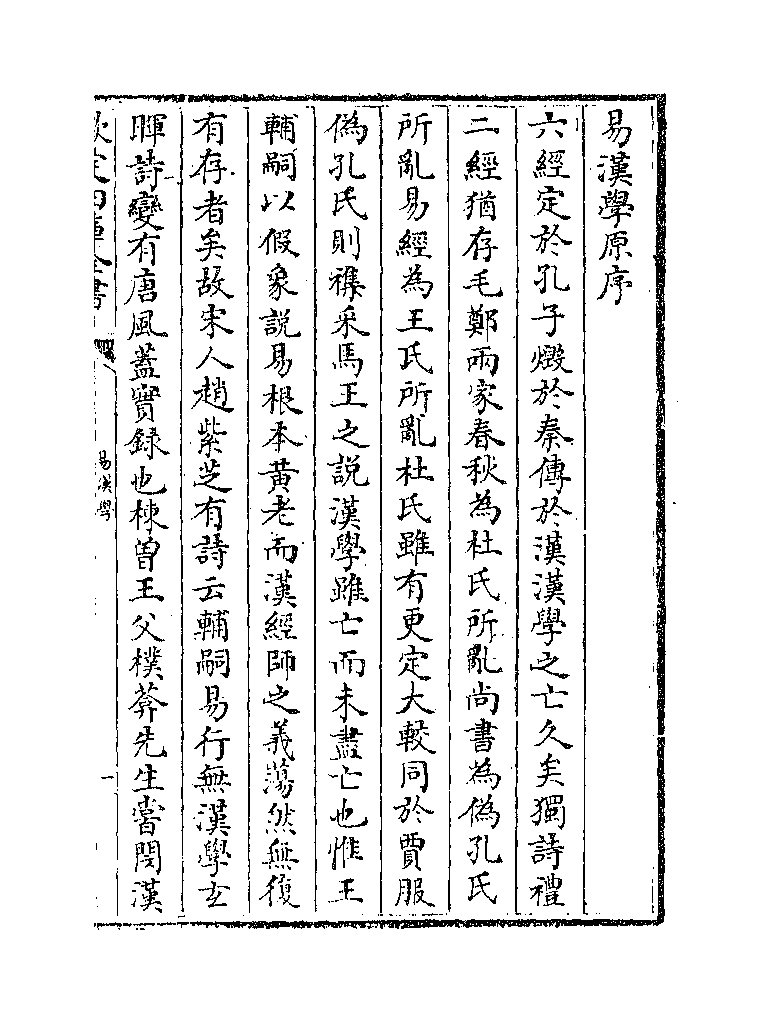 易漢學原序
六經定於孔子燬於秦傳於漢漢學之亡久矣獨詩禮
二經猶存毛鄭兩家春秋為杜氏所亂尚書為偽孔氏
所亂易經為王氏所亂杜氏雖有更定大較同於賈服
偽孔氏則襍采馬王之說漢學雖亡而未盡亡也惟王
輔嗣以假象說易根本黃老而漢經師之義蕩然無復
有存者矣故宋人趙紫芝有詩云輔嗣易行無漢學玄
暉詩變有唐風蓋實録也棟曾王父樸菴先生嘗閔漢
欽定四庫全書
易漢學
一